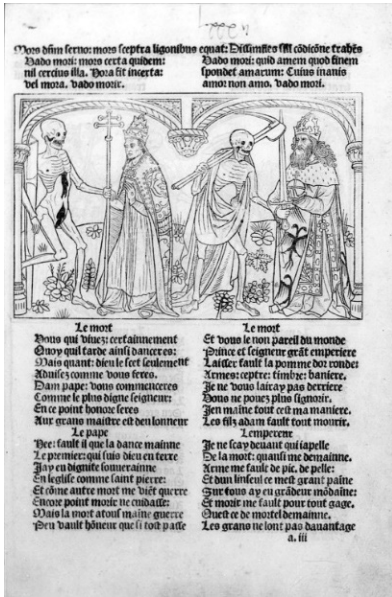 Mors dñm servo: mors sceptra ligonibus equat: Dissimiles sili cõdicõne trahẽs
Vado mori: mors certa quidem:
nil cercius illa. Hora fit incerta:
vel mora. vado morir.
Vado mori: quid amem quod finem
spondet amarum: Cuius inanis
amor: non amo. vado mori.
Le mort
Vous qui vivez: certainnement
Quoy quil tarde ainsi danceres:
Mais quant: dieu le scet seulement
Advisez comme vous feres.
Dam pape: vous commenceres
Comme le plus digne seigneur:
En ce point honore seres
Aux grans maistre est deu lonneur
Le pape
Hee: fault il que la dance mainne
Le premier: qui suis dieu en terre
Jay eu dignite souverainne
En leglise comme saint pierre:
Et cõme autre mort me viẽt querre
Encore point morir ne cuidasse:
Mais la mort a tous maine guerre
Peu vault hõneur que si tost passe
Le mort
Et vous le non pareil du monde
Prince et seigneur grãt emperiere
Laisser fault la pomme dor ronde:
Armes: ceptre: timbre: baniere.
Je ne vous lairay pas derriere
Vous ne povez plus signorir.
Jen maine tout cest ma maniere.
Les filz adam fault tout mourir.
Lempereur
Je ne scay devant qui iapelle
De la mort: quansi me demainne.
Arme me fault de pic. de pelle:
Et dun linseul ce mest grant paine
Sur tous ay eu grãdeur mõdaine:
Et morir me fault pour tout gage.
Quest ce de mortel demainne.
Les grans ne lont pas davantage
a. iii